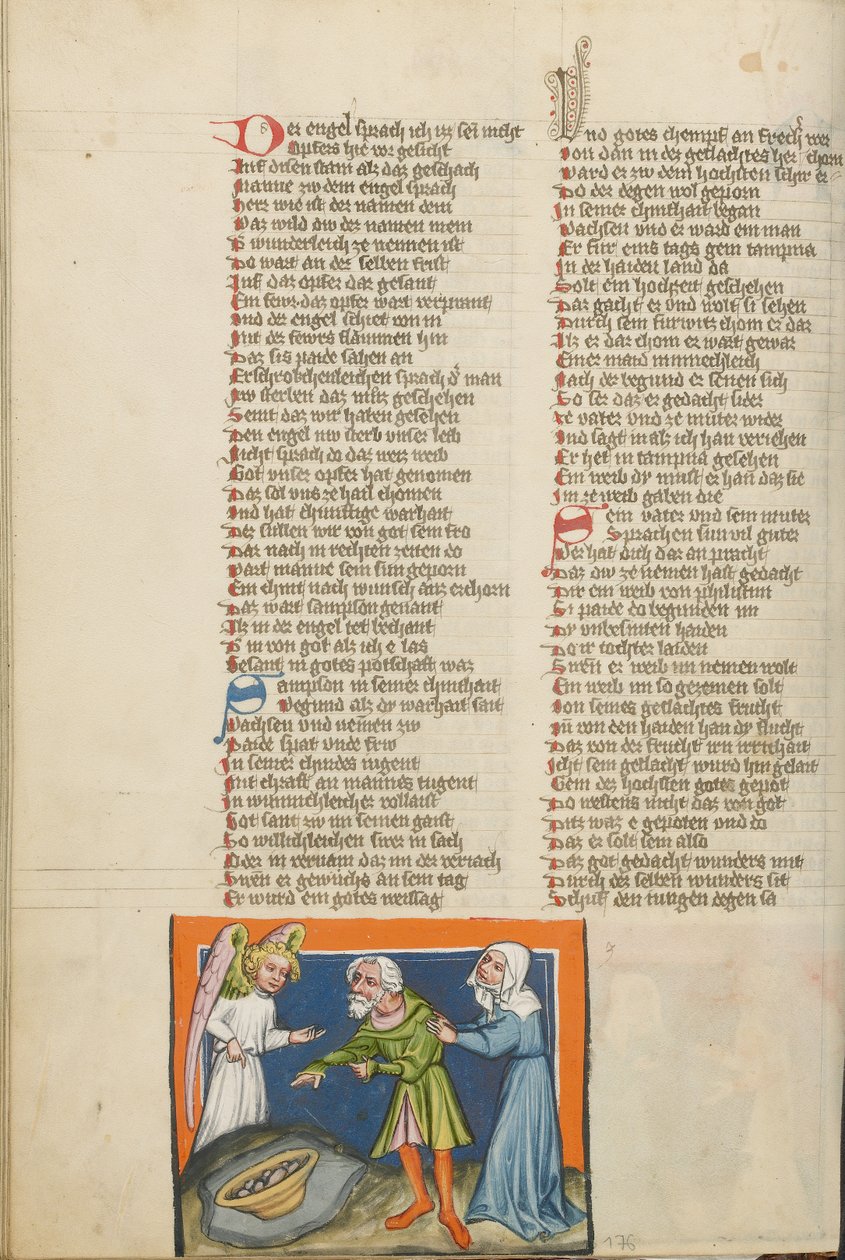 Der engel sprach ich iz sein nicht
Opfers hie vor gesicht
Auf disen stain alz daz geschach
Manne zw dem engel sprach
herr wie ist der namen dein
Waz wild dw der namen mein
wunderleich ze nennen ist
Do wart an der selben frist
Auf daz opfer dar gesant
Ein fewr daz opfer wart verprant
Und der engel schiet von in
Mit der fewrs flammen hin
Daz sis paide sahen an
Erschrokchenleichen sprach der man
Nw sterben daz muz geschehen
Seint daz wir haben gesehen
Den engel nw sterb unser leib
Nicht sprach do daz weis weib
Got unser opfer hat genomen
Daz sol uns ze hail chomen
Und hat chunftige warhait
Der sullen wir von got sein fro
Dar nach in rechten zeiten do
Wart manne sein sun geporn
Ein chint nach wunsch auz erchorn
Daz wart sampson genant
Alz in der engel tet bechant
in von got alz ich e las
Gesant in gotes potschaft waz
Sampson in seiner chinthait
Begund alz dy warhait sait
Wachsen und nemen zw
Paide spat unde frw
In seiner chindes iugent
Mit chraft an mannes tugent
In wunnichleicher vollaist
Got sant zw im seinen gaist
So willichleichen in sach
Oder in vernam daz im der veriach
Swen er gewuchs an sein tag
Er wurd ein gotes weissag
Und gotes chempf an
Von dan in der geslachtes her chorn
Ward er zw dem hochsten
Do der degen wol geporn
In seiner chinthait began
Wachsen und er ward ein man
Er fur eins tags gein tampna
In der haiden land da
Solt ein hochzeit geschehen
Dar gacht er und wolt si sehen
Durch sein furwitz chom er dar
Alz er dar chom er wart gewar
Einer maid minnechleich
Nach der begund er senen sich
So ser daz er gedacht sider
ze vater und ze muter wider
Und sagt in alz ich han veriehen
Er het in tampna gesehen
Ein weib dy must er han daz sie
Im ze weib gaben die
Sein vater und sein muter
Sprachen sun vil guter
Wer hat dich dar an pracht
Daz dw ze nemen hast gedacht
Dir ein weib von philistim
Si paide do begunden im
Dy unbesniten haiden
Do ir tochter laiden
Swen er weib im nemen wolt
Ein weib im so gezemen solt
Von seines geslachtes frucht
von den haiden han dy flucht
Daz von der frucht irn irrichait
Icht sein geslacht wurd hin gelait
Gein der hochsten gotes gepot
Do westens nicht daz von got
Ditz waz e gepoten und do
Daz er solt sein also
Daz got gedacht wunders mit
Durch der selben wunders sit
Schuf den iungen degen sa
176